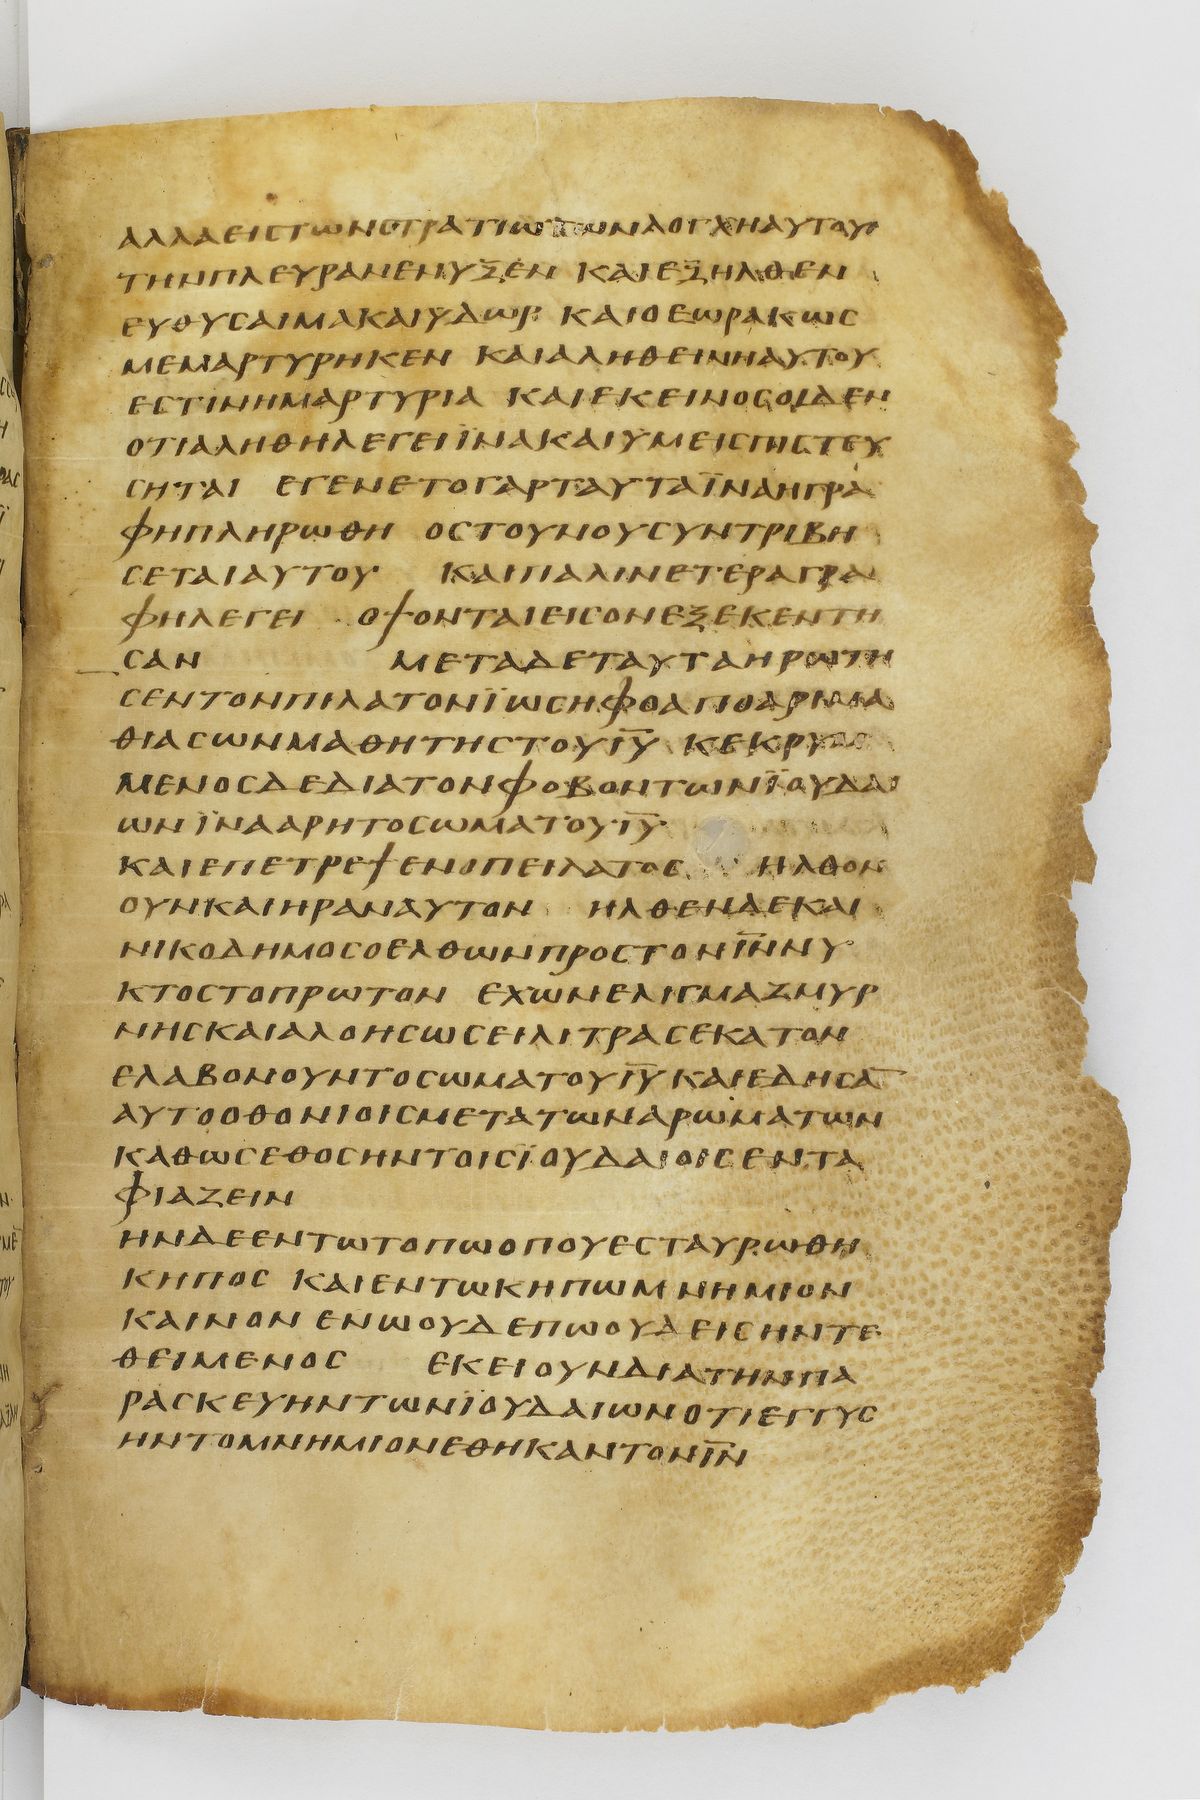 ΑΛΛΑΕΙΣΤΩΝΣΤΡΑΤΙΩΤΩΝΛΟΓΧΗΑΥΤΟΥ
ΤΗΝΠΛΕΥΡΑΝΕΝΥΞΕΝ ΚΑΙΕΞΗΛΘΕΝ
ΕΥΘΥΣΑΙΜΑΚΑΙΥΔΩΡ ΚΑΙΟΕΩΡΑΚΩΣ
ΜΕΜΑΡΤΥΡΗΚΕΝ ΚΑΙΑΛΗΘΕΙΝΗΑΥΤΟΥ
ΕΣΤΙΝΗΜΑΡΤΥΡΙΑ ΚΑΙΕΚΕΙΝΟΣΟΙΔΕΝ
ΟΤΙΑΛΗΘΗΛΕΓΕΙΪΝΑΚΑΙΥΜΕΙΣΠΙΣΤΕΥ
ΣΗΤΑΙ ΕΓΕΝΕΤΟΓΑΡΤΑΥΤΑΪΝΑΗΓΡΑ
ΦΗΠΛΗΡΩΘΗ ΟΣΤΟΥΝΟΥΣΥΝΤΡΙΒΗ
ΣΕΤΑΙΑΥΤΟΥ ΚΑΙΠΑΛΙΝΕΤΕΡΑΓΡΑ
ΦΗΛΕΓΕΙ ΟΨΟΝΤΑΙΕΙΣΟΝΕΞΕΚΕΝΤΗ
ΣΑΝ ΜΕΤΑΔΕΤΑΥΤΑΗΡΩΤΗ
ΣΕΝΤΟΝΠΙΛΑΤΟΝΪΩΣΗΦΟΑΠΟΑΡΙΜΑ
ΘΙΑΣΩΝΜΑΘΗΤΗΣΤΟΥΙ̅Υ̅ ΚΕΚΡΥΜ
ΜΕΝΟΣΔΕΔΙΑΤΟΝΦΟΒΟΝΤΩΝΪΟΥΔΑΙ
ΩΝ ΪΝΑΑΡΗΤΟΣΩΜΑΤΟΥΙ̅Υ̅
ΚΑΙΕΠΕΤΡΕΨΕΝΟΠΕΙΛΑΤΟΣ ΗΛΘΟΝ
ΟΥΝΚΑΙΗΡΑΝΑΥΤΟΝ ΗΛΘΕΝΔΕΚΑΙ
ΝΙΚΟΔΗΜΟΣΟΕΛΘΩΝΠΡΟΣΤΟΝΙ̅Ν̅ΝΥ
ΚΤΟΣΤΟΠΡΩΤΟΝ ΕΧΩΝΕΛΙΓΜΑΖΜΥΡ
ΝΗΣΚΑΙΑΛΟΗΣΩΣΕΙΛΙΤΡΑΣΕΚΑΤΟΝ
ΕΛΑΒΟΝΟΥΝΤΟΣΩΜΑΤΟΥΙ̅Υ̅ΚΑΙΕΔΗΣΑ̅
ΑΥΤΟΟΘΟΝΙΟΙΣΜΕΤΑΤΩΝΑΡΩΜΑΤΩΝ
ΚΑΘΩΣΕΘΟΣΗΝΤΟΙΣΪΟΥΔΑΙΟΙΣΕΝΤΑ
ΦΙΑΖΕΙΝ
ΗΝΔΕΕΝΤΩΤΟΠΩΟΠΟΥΕΣΤΑΥΡΩΘΗ
ΚΗΠΟΣ ΚΑΙΕΝΤΩΚΗΠΩΜΝΗΜΙΟΝ
ΚΑΙΝΟΝ ΕΝΩΟΥΔΕΠΩΟΥΔΕΙΣΗΝΤΕ
ΘΕΙΜΕΝΟΣ ΕΚΕΙΟΥΝΔΙΑΤΗΝΠΑ
ΡΑΣΚΕΥΗΝΤΩΝΪΟΥΔΑΙΩΝΟΤΙΕΓΓΥΣ
ΗΝΤΟΜΝΗΜΙΟΝΕΘΗΚΑΝΤΟΝΙ̅Ν̅